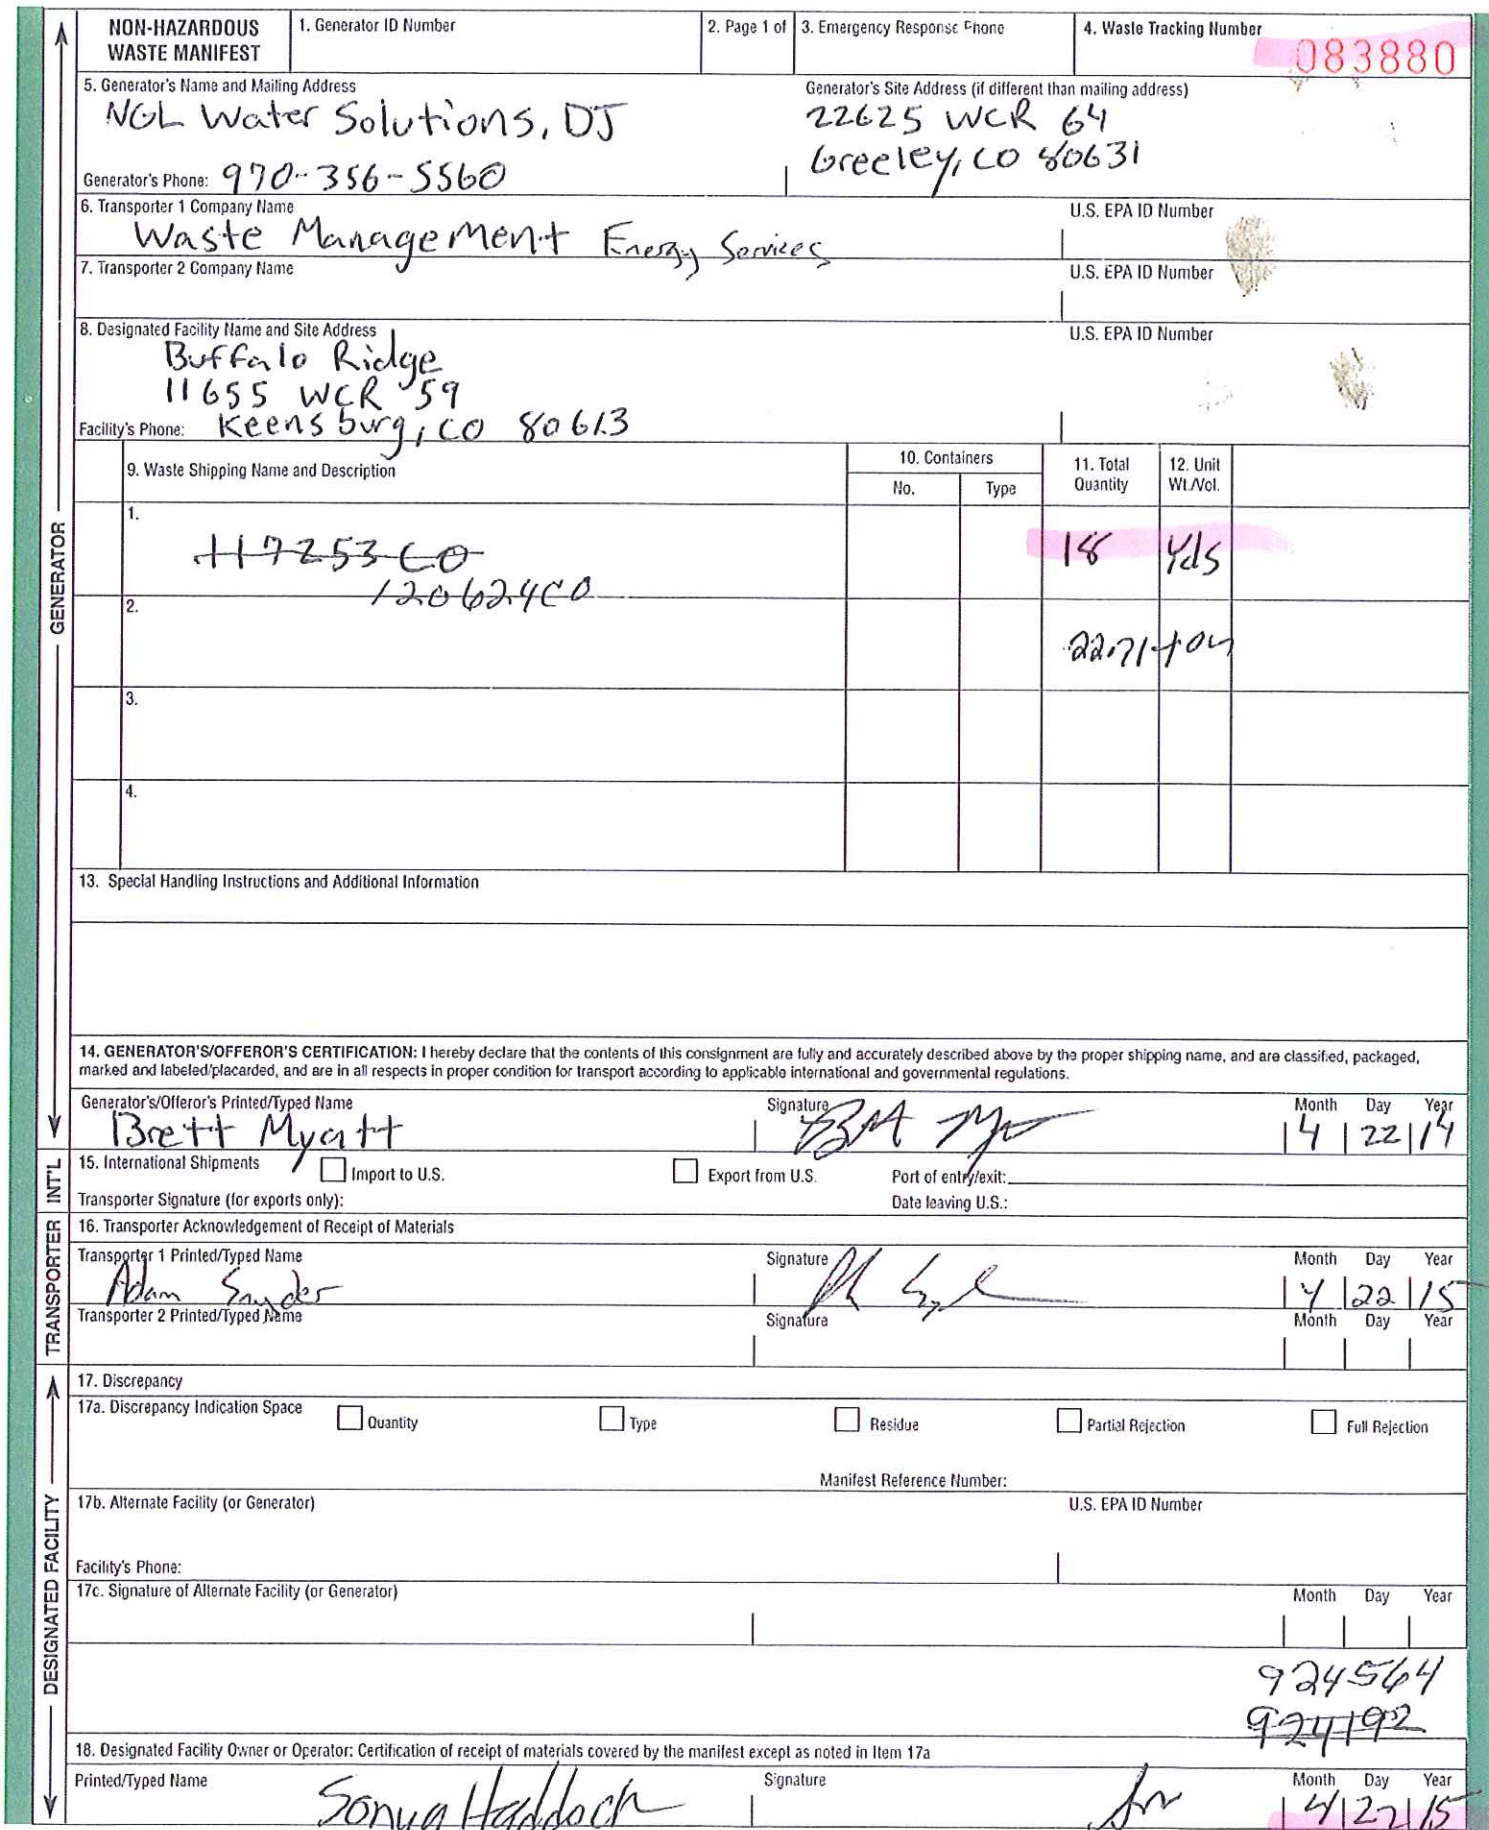 NON-HAZARDOUS WASTE MANIFEST
1. Generator ID Number
2. Page 1 of
3. Emergency Response Phone
4. Waste Tracking Number
083880
5. Generator's Name and Mailing Address
NGL Water Solutions, DJ
Generator's Site Address (if different than mailing address)
22625 WCR 64
Greeley, CO 80631
Generator's Phone: 970-356-5560
6. Transporter 1 Company Name
Waste Management Energy Services
U.S. EPA ID Number
7. Transporter 2 Company Name
U.S. EPA ID Number
8. Designated Facility Name and Site Address
Buffalo Ridge
11655 WCR 59
Keensburg, CO 80613
U.S. EPA ID Number
Facility's Phone:
9. Waste Shipping Name and Description
10. Containers
No.
Type
11. Total Quantity
12. Unit Wt./Vol.
1.
117253 CO
120624CO
18 Yds
2.
22.71 ton
3.
4.
13. Special Handling Instructions and Additional Information
14. GENERATOR'S/OFFEROR'S CERTIFICATION: I hereby declare that the contents of this consignment are fully and accurately described above by the proper shipping name, and are classified, packaged,
marked and labeled/placarded, and are in all respects in proper condition for transport according to applicable international and governmental regulations.
Generator's/Offeror's Printed/Typed Name
Brett Myatt
Signature
Month Day Year
4 22 14
15. International Shipments
Import to U.S.
Export from U.S.
Port of entry/exit:
Transporter Signature (for exports only):
Date leaving U.S.:
16. Transporter Acknowledgement of Receipt of Materials
Transporter 1 Printed/Typed Name
Adam Snyder
Signature
Month Day Year
4 22 15
Transporter 2 Printed/Typed Name
Signature
Month Day Year
17. Discrepancy
17a. Discrepancy Indication Space
Quantity
Type
Residue
Partial Rejection
Full Rejection
Manifest Reference Number:
17b. Alternate Facility (or Generator)
U.S. EPA ID Number
Facility's Phone:
17c. Signature of Alternate Facility (or Generator)
Month Day Year
924564
924192
18. Designated Facility Owner or Operator: Certification of receipt of materials covered by the manifest except as noted in Item 17a
Printed/Typed Name
Sonya Haddock
Signature
Month Day Year
4 22 15
GENERATOR
INT'L
TRANSPORTER
DESIGNATED FACILITY